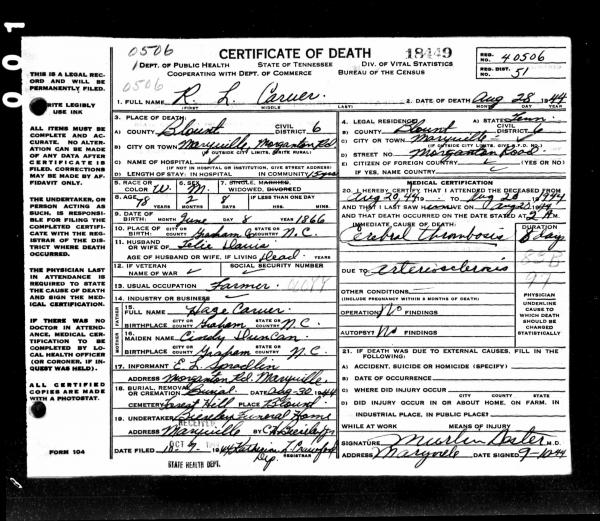 001
0506
CERTIFICATE OF DEATH
18449
DEPT. OF PUBLIC HEALTH STATE OF TENNESSEE DIV. OF VITAL STATISTICS
COOPERATING WITH DEPT. OF COMMERCE BUREAU OF THE CENSUS
REG. NO. 40506
REG. DIST. 51
0506
THIS IS A LEGAL RECORD AND WILL BE PERMANENTLY FILED.
WRITE LEGIBLY
USE INK
ALL ITEMS MUST BE COMPLETE AND ACCURATE. NO ALTERATION CAN BE MADE OF ANY DATA AFTER CERTIFICATE IS FILED. CORRECTIONS MAY BE MADE BY AFFIDAVIT ONLY.
THE UNDERTAKER, OR PERSON ACTING AS SUCH, IS RESPONSIBLE FOR FILING THE COMPLETED CERTIFICATE WITH THE REGISTRAR OF THE DISTRICT WHERE DEATH OCCURRED.
THE PHYSICIAN LAST IN ATTENDANCE IS REQUIRED TO STATE THE CAUSE OF DEATH AND SIGN THE MEDICAL CERTIFICATION.
IF THERE WAS NO DOCTOR IN ATTENDANCE, MEDICAL CERTIFICATION TO BE COMPLETED BY LOCAL HEALTH OFFICER (OR CORONER, IF INQUEST WAS HELD).
ALL CERTIFIED COPIES ARE MADE WITH A PHOTOSTAT.
FORM 104
1. FULL NAME R. L. Carver.
(FIRST) (MIDDLE) (LAST)
2. DATE OF DEATH Aug 28 1944
MONTH DAY YEAR
3. PLACE OF DEATH:
A) COUNTY Blount CIVIL DISTRICT 6
B) CITY OR TOWN Maryville, Morganton Rd.
(IF OUTSIDE CITY LIMITS, WRITE RURAL)
C) NAME OF HOSPITAL
(IF NOT IN HOSPITAL OR INSTITUTION, GIVE STREET ADDRESS)
D) LENGTH OF STAY: IN HOSPITAL IN COMMUNITY 15 yrs
4. LEGAL RESIDENCE: A) STATE Tenn.
B) COUNTY Blount CIVIL DISTRICT 6
C) CITY OR TOWN Maryville
D) STREET NO. Morganton Road
E) CITIZEN OF FOREIGN COUNTRY (YES OR NO)
IF YES, NAME COUNTRY
5. RACE OR COLOR W. 6. SEX M. 7. SINGLE, MARRIED, WIDOWED, DIVORCED
8. AGE 78 YEARS 2 MONTHS 8 DAYS IF LESS THAN ONE DAY
9. DATE OF BIRTH: June 8 1866
MONTH DAY YEAR
10. PLACE OF BIRTH: Graham Co N.C.
11. HUSBAND OR WIFE OF Davis
AGE OF HUSBAND OR WIFE, IF LIVING Dead. YEARS
12. IF VETERAN NAME OF WAR SOCIAL SECURITY NUMBER
13. USUAL OCCUPATION Farmer
14. INDUSTRY OR BUSINESS
15. FULL NAME Carver.
BIRTHPLACE Graham N.C.
16. MAIDEN NAME Cindy Duncan
BIRTHPLACE Graham N.C.
17. INFORMANT E. L. Spradlin
ADDRESS Morganton Rd. Maryville.
18. BURIAL, REMOVAL OR CREMATION Burial DATE Aug 30 1944
CEMETERY Forest Hill PLACE Blount.
19. UNDERTAKER Funeral Home
RECEIVED
ADDRESS Maryville BY
DATE FILED OCT 1944 Katherine Crawford
Dep. REGISTRAR
STATE HEALTH DEPT.
MEDICAL CERTIFICATION
20. I HEREBY CERTIFY THAT I ATTENDED THE DECEASED FROM
Aug 20, 44 TO Aug 28 1944
AND THAT I LAST SAW ALIVE ON
AND THAT DEATH OCCURRED ON THE DATE STATED AT 2 A M.
IMMEDIATE CAUSE OF DEATH: DURATION
Cerebral Thrombosis 8 days
83B
DUE TO Arteriosclerosis
97
OTHER CONDITIONS
(INCLUDE PREGNANCY WITHIN 3 MONTHS OF DEATH)
OPERATION? No FINDINGS
AUTOPSY? No FINDINGS
PHYSICIAN
UNDERLINE CAUSE TO WHICH DEATH SHOULD BE CHARGED STATISTICALLY
21. IF DEATH WAS DUE TO EXTERNAL CAUSES, FILL IN THE FOLLOWING:
A) ACCIDENT, SUICIDE OR HOMICIDE (SPECIFY)
B) DATE OF OCCURRENCE
C) WHERE DID INJURY OCCUR
CITY COUNTY STATE
D) DID INJURY OCCUR IN OR ABOUT HOME, ON FARM, IN
INDUSTRIAL PLACE, IN PUBLIC PLACE?
WHILE AT WORK MEANS OF INJURY
SIGNATURE M.D.
ADDRESS Maryville DATE SIGNED